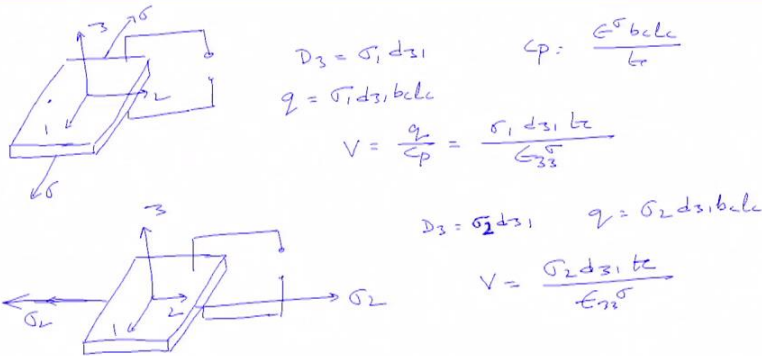 3 σ
2
1
σ
D₃ = σ₁ d₃₁
Cp = ϵ^σ bclc / tc
q = σ₁ d₃₁ bclc
V = q / Cp = σ₁ d₃₁ tc / ϵ₃₃^σ
3
2
1
σ₂
σ₂
D₃ = σ₂ d₃₁ q = σ₂ d₃₁ bclc
V = σ₂ d₃₁ tc / ϵ₃₃^σ